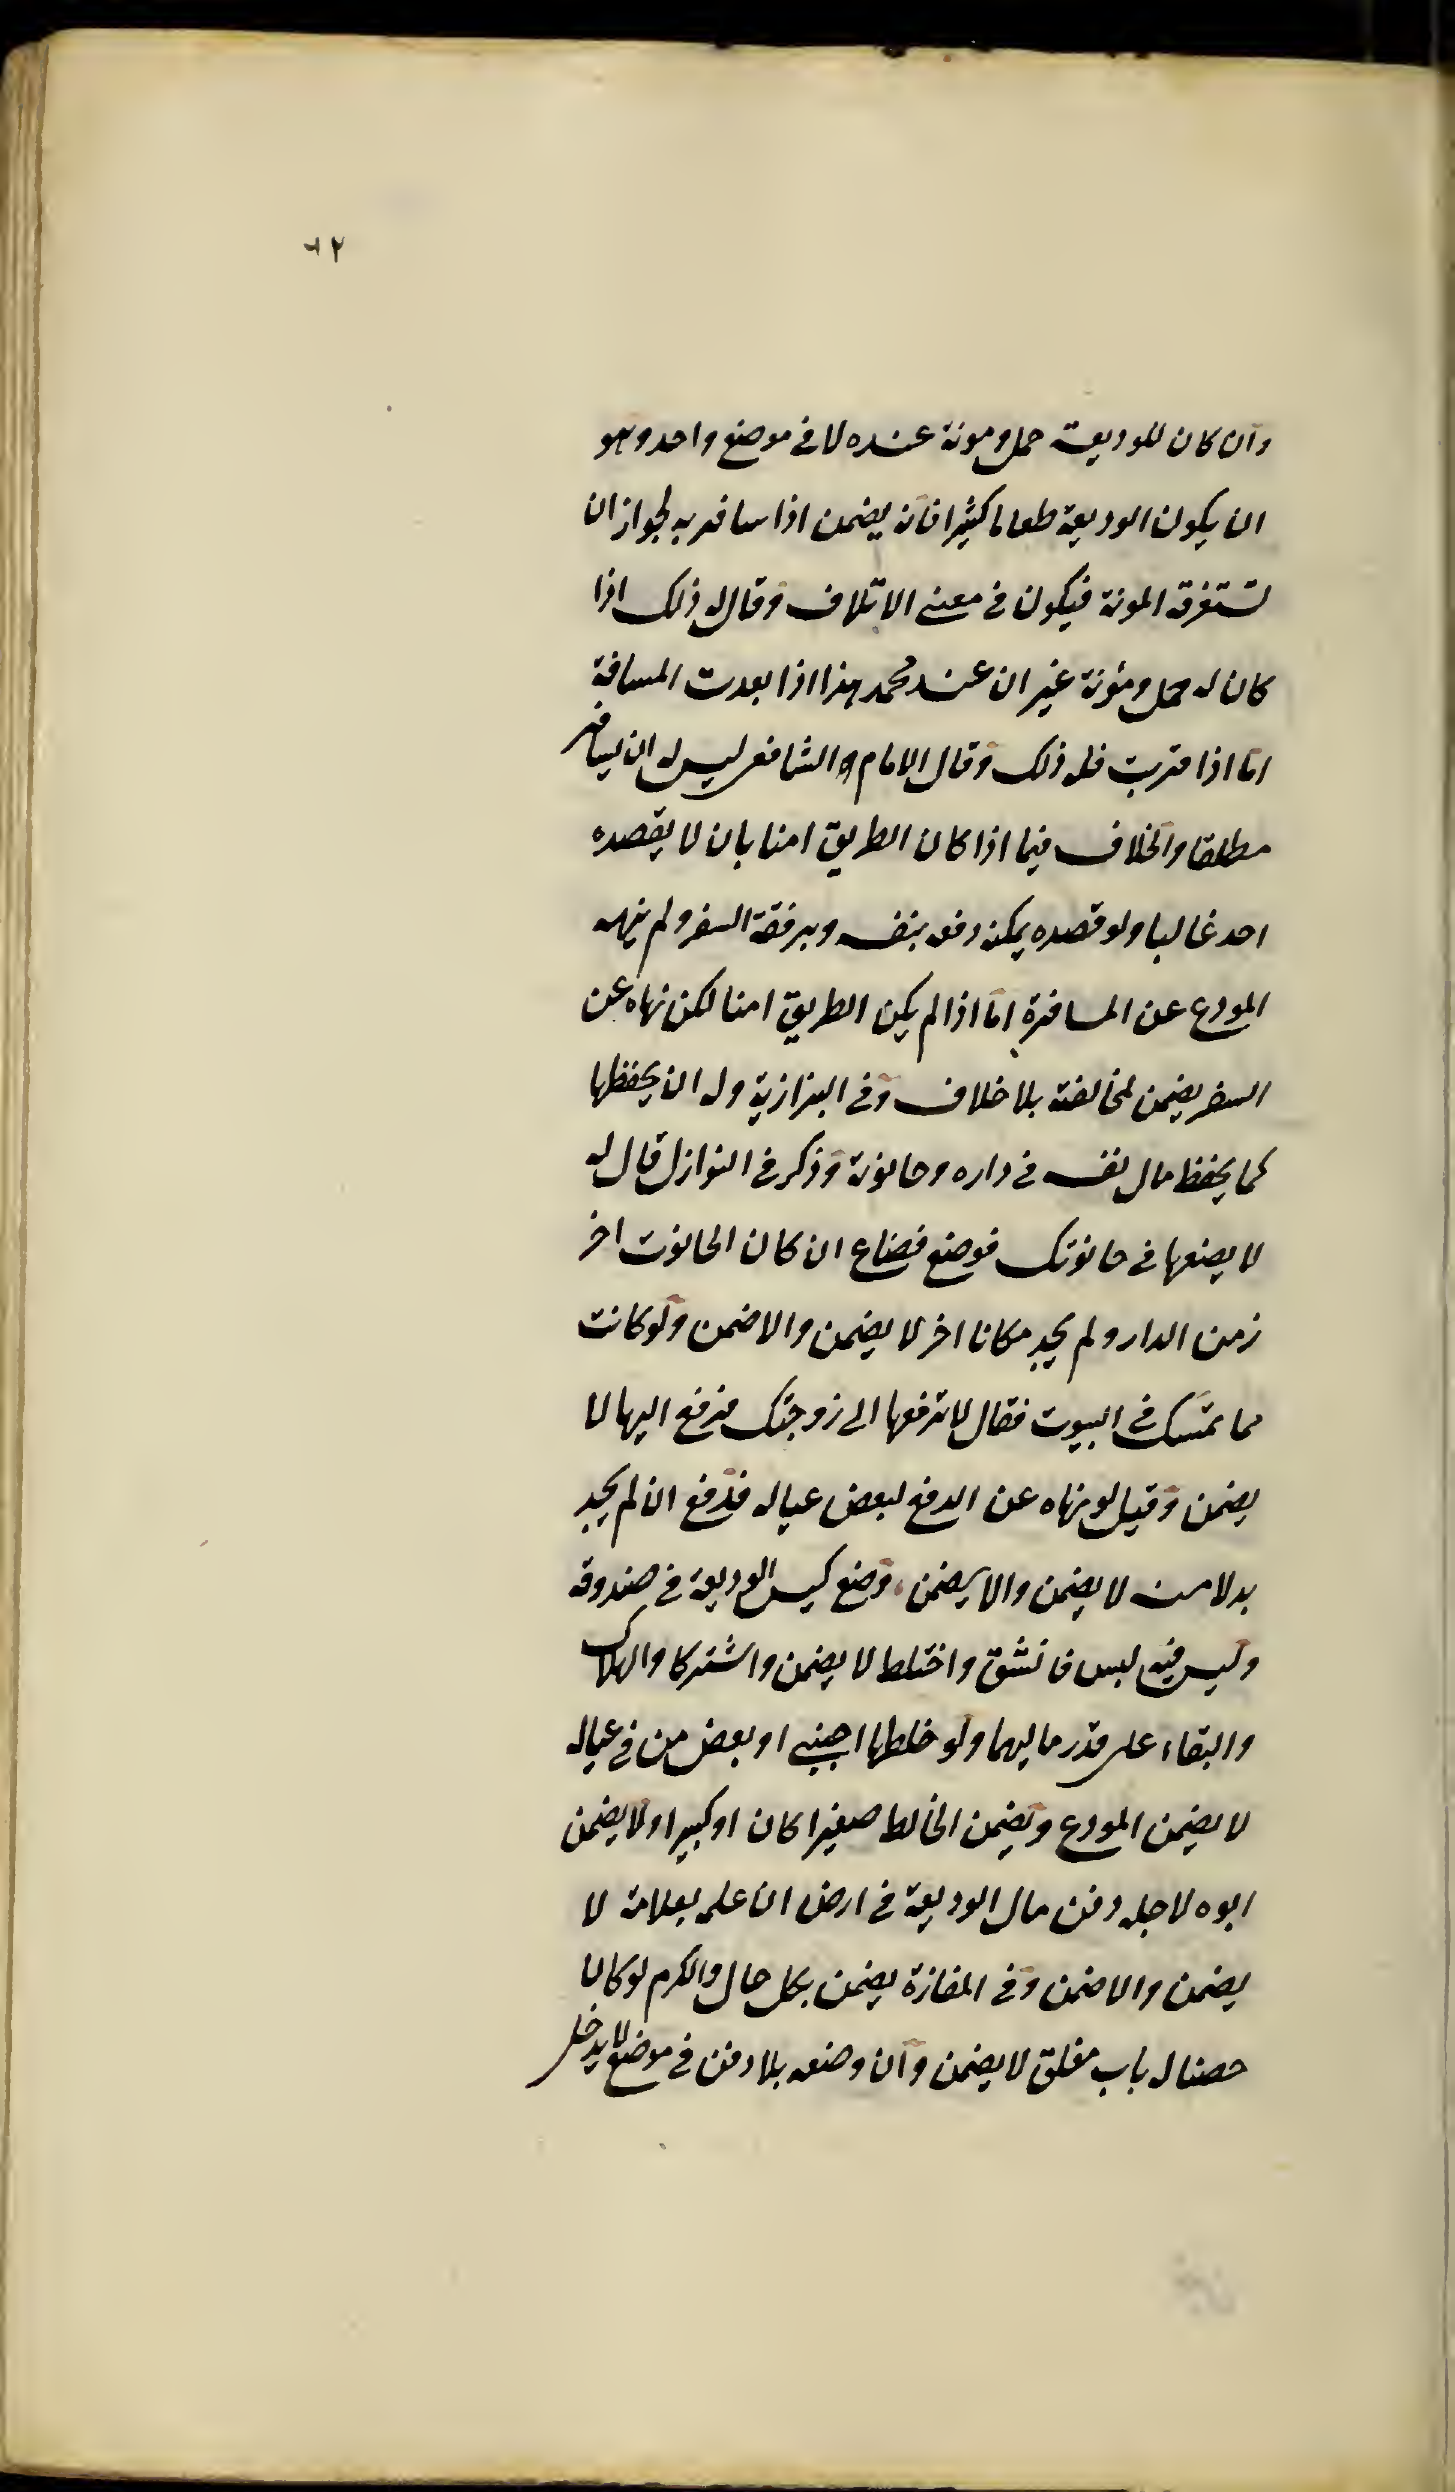 ٦٢
وان كان للوديعة حمل ومونة عنده لا في موضع واحد وهو
ان يكون الوديعة طعاما كثيرا فانه يضمن اذا سافر به لجواز ان
تستغرقه المونة فيكون في معنى الاتلاف وقالا له ذلك اذا
كان له حمل ومؤنة غير ان عند محمد هذا اذا بعدت المسافة
اما اذا قربت فله ذلك وقال الامام الشافعى ليس له ان يسافر
مطلقا والخلاف فيما اذا كان الطريق امنا بان لا يقصده
احد غالبا ولو قصده يمكنه دفعه بنفسه وبرفقة السفر ولم ينهه
المودع عن المسافرة اما اذا لم يكن الطريق امنا لكن نهاه عن
السفر يضمن لمخالفته بلا خلاف وفي البزازية وله ان يحفظها
كما يحفظ مال نفسه في داره وحانوته وذكر في النوازل قال له
لا يضعها في حانوتك فوضع فضاع ان كان الحانوت احر
ز من الدار ولم يجد مكانا اخر لا يضمن والا ضمن ولو كانت
مما تمسك في البيوت فقال لا تدفعها الى زوجتك فدفع اليها لا
يضمن وقيل لو نهاه عن الدفع لبعض عياله فدفع ان لم يجد
بدلا منه لا يضمن والا يضمن وضع كيس الوديعة في صندوقه
وليس فيه لبس فانشق واختلط لا يضمن واشتركا والهلاك
والبقاء على قدر ماليهما ولو خلطها اجنبي او بعض من في عياله
لا يضمن المودع ويضمن الخالط صغيرا كان او كبيرا ولا يضمن
ابوه لاجله دفن مال الوديعة في ارض ان علمه بعلامة لا
يضمن والا ضمن وفي المفازة يضمن بكل حال والكرم لو كان
حصنا له باب مغلق لا يضمن وان وضعه بلا دفن في موضع لا يدخل